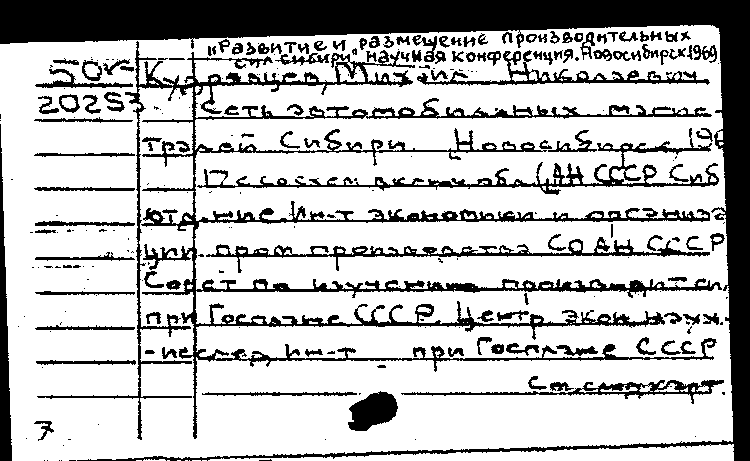 "Развитие и размещение производительных
сил Сибири", научная конференция. Новосибирск 1969
50к Кудрявцев, Михаил Николаевич
20253. Сеть автомобильных магис-
тралей Сибири. Новосибирск, 196
12 с со схем. включ. обл. (АН СССР Сиб
отд-ние. Ин-т экономики и организа
ции пром. производства СО АН СССР
Совет по изучению производит. сил
при Госплане СССР. Центр. экон. научн.
-исслед. ин-т при Госплане СССР
См. след. карт.
7